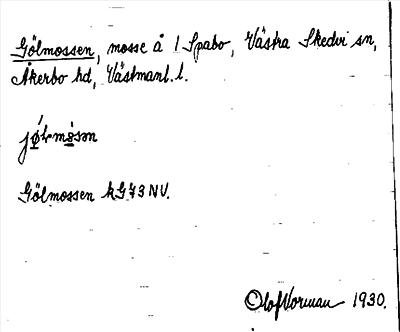 Gölmossen, mosse å 1 Spabo, Västra Skedvi sn,
Åkerbo hd, Västmanl. l.
Gölmossen kG73NV.
Olof Vorman 1930.